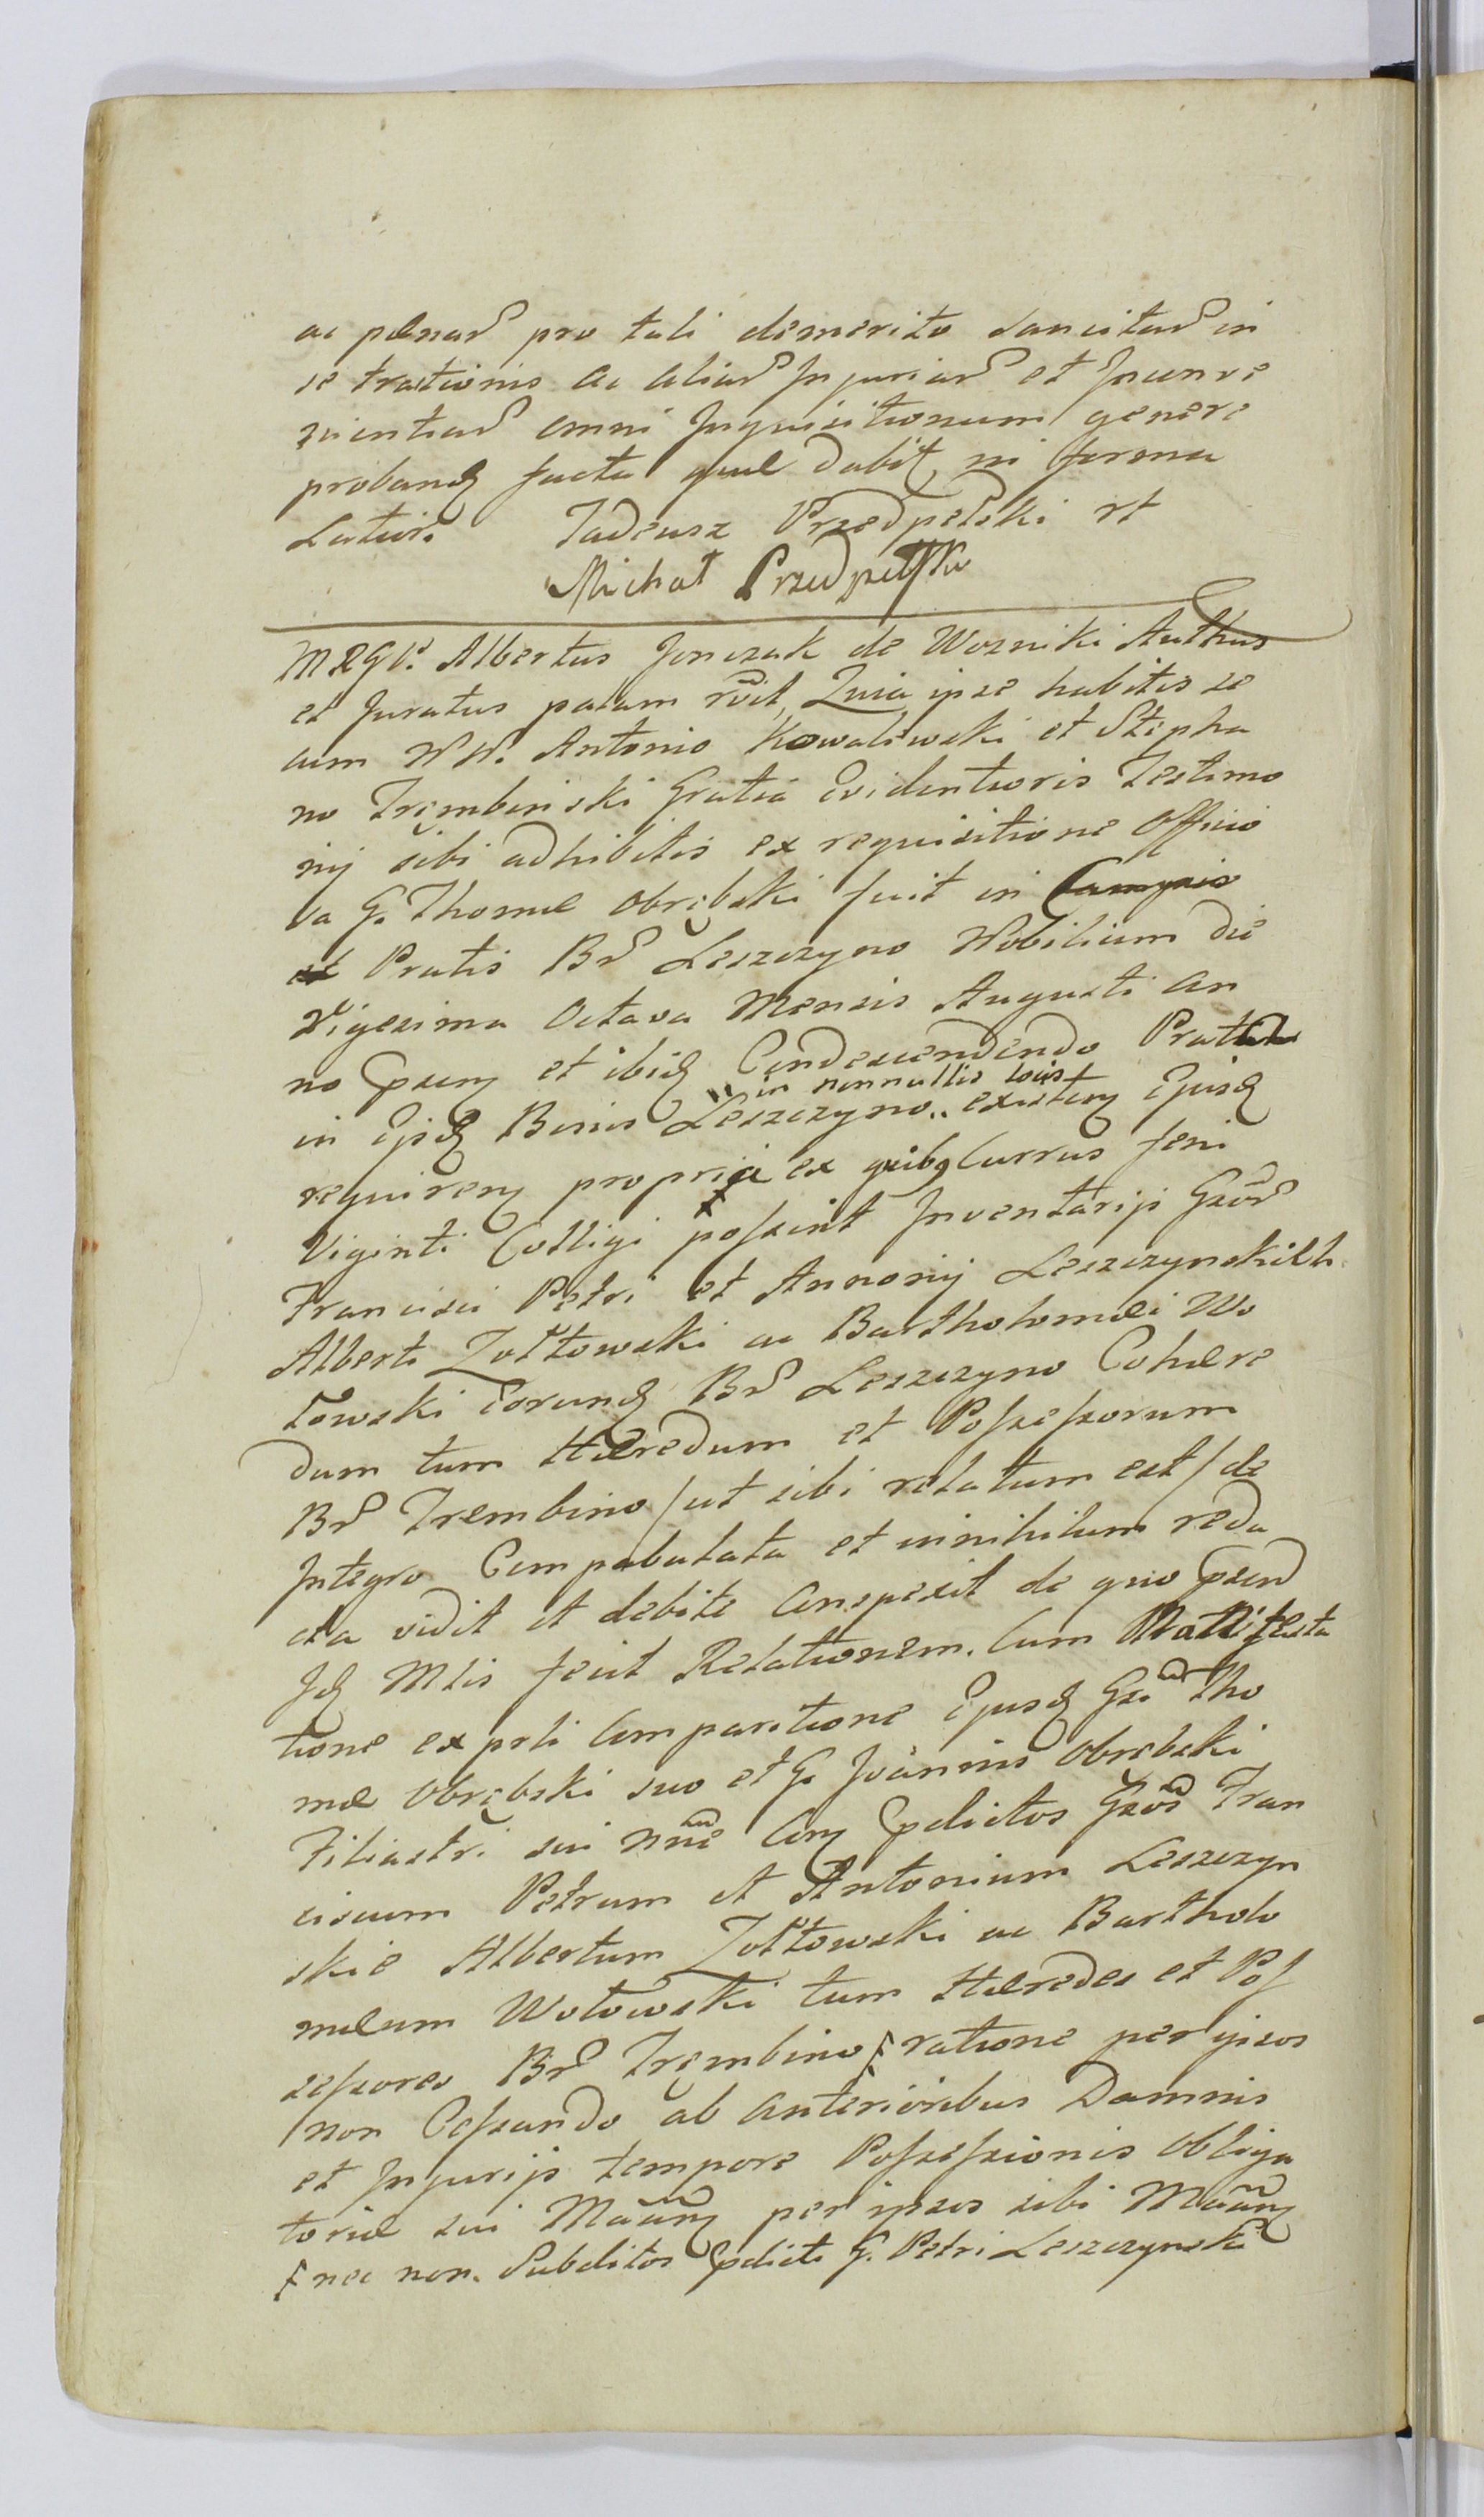 ac pænas pro tali demerito sancitas in
se tractionis ac alias Injurias et Inconve
nientias omni Inquisitionum genere
proband facta quæ dabit, ni forma
Latior. Tadeusz Przedpełski rt
Michał Przedpełski
MRGP. Albertus Jonczak de Wozniki Authus
et Juratus palam rvit, Quia ipse habitis se
cum NN. Antonio Kowalewski et Stepha
no Trembinski Gratia Evidentioris Testimo
nij sibi adhibitis ex requisitione Officio
sa G. Thomæ Obrębski fuit in Campis
et Pratis Br Leszczyno Nobilium die
Vigesima Octava Mensis Augusti an
no psen et ibid Condescendendo Prata
in Ejsd Bonis Leszczyno " in nonnullis locis " existen Ejusd
requiren propria ex quibq Currus feni
Viginti Colligi possint Inventarijs Gsor
Francisci Petri et Antonij Leszczynskich
Alberti Zołtowski ac Bartholomæi Wo
łowski Eorund Br Leszczyno Cohære
dum tum Hæredum et Possessorum
Br Trembino / ut sibi relatum est / de
Integro Compabulata et in nihilum reda
cta vidit et debite Conspexit de quo psen
Id Mlis fecit Relationem. Cum Manifesta
tione ex psli Comparitione Ejusd Gsi Tho
mæ Obrębski suo et G. Joannis Obrębski
Filiastri sui nne Con pdictos Gsos Fran
ciscum Petrum et Antonium Leszczyn
skie Albertum Zołtowski ac Bartholo
mæum Wołowski tum Hæredes et Pos
sessores Br Trembino ratione per ipsos
non Cessando ab anterioribus Damnis
et Injurijs tempore Possessionis Obliga
toriæ sui Maan per ipsos sibi Maan
nec non. Subditos pdicti G. Petri Leszczynski